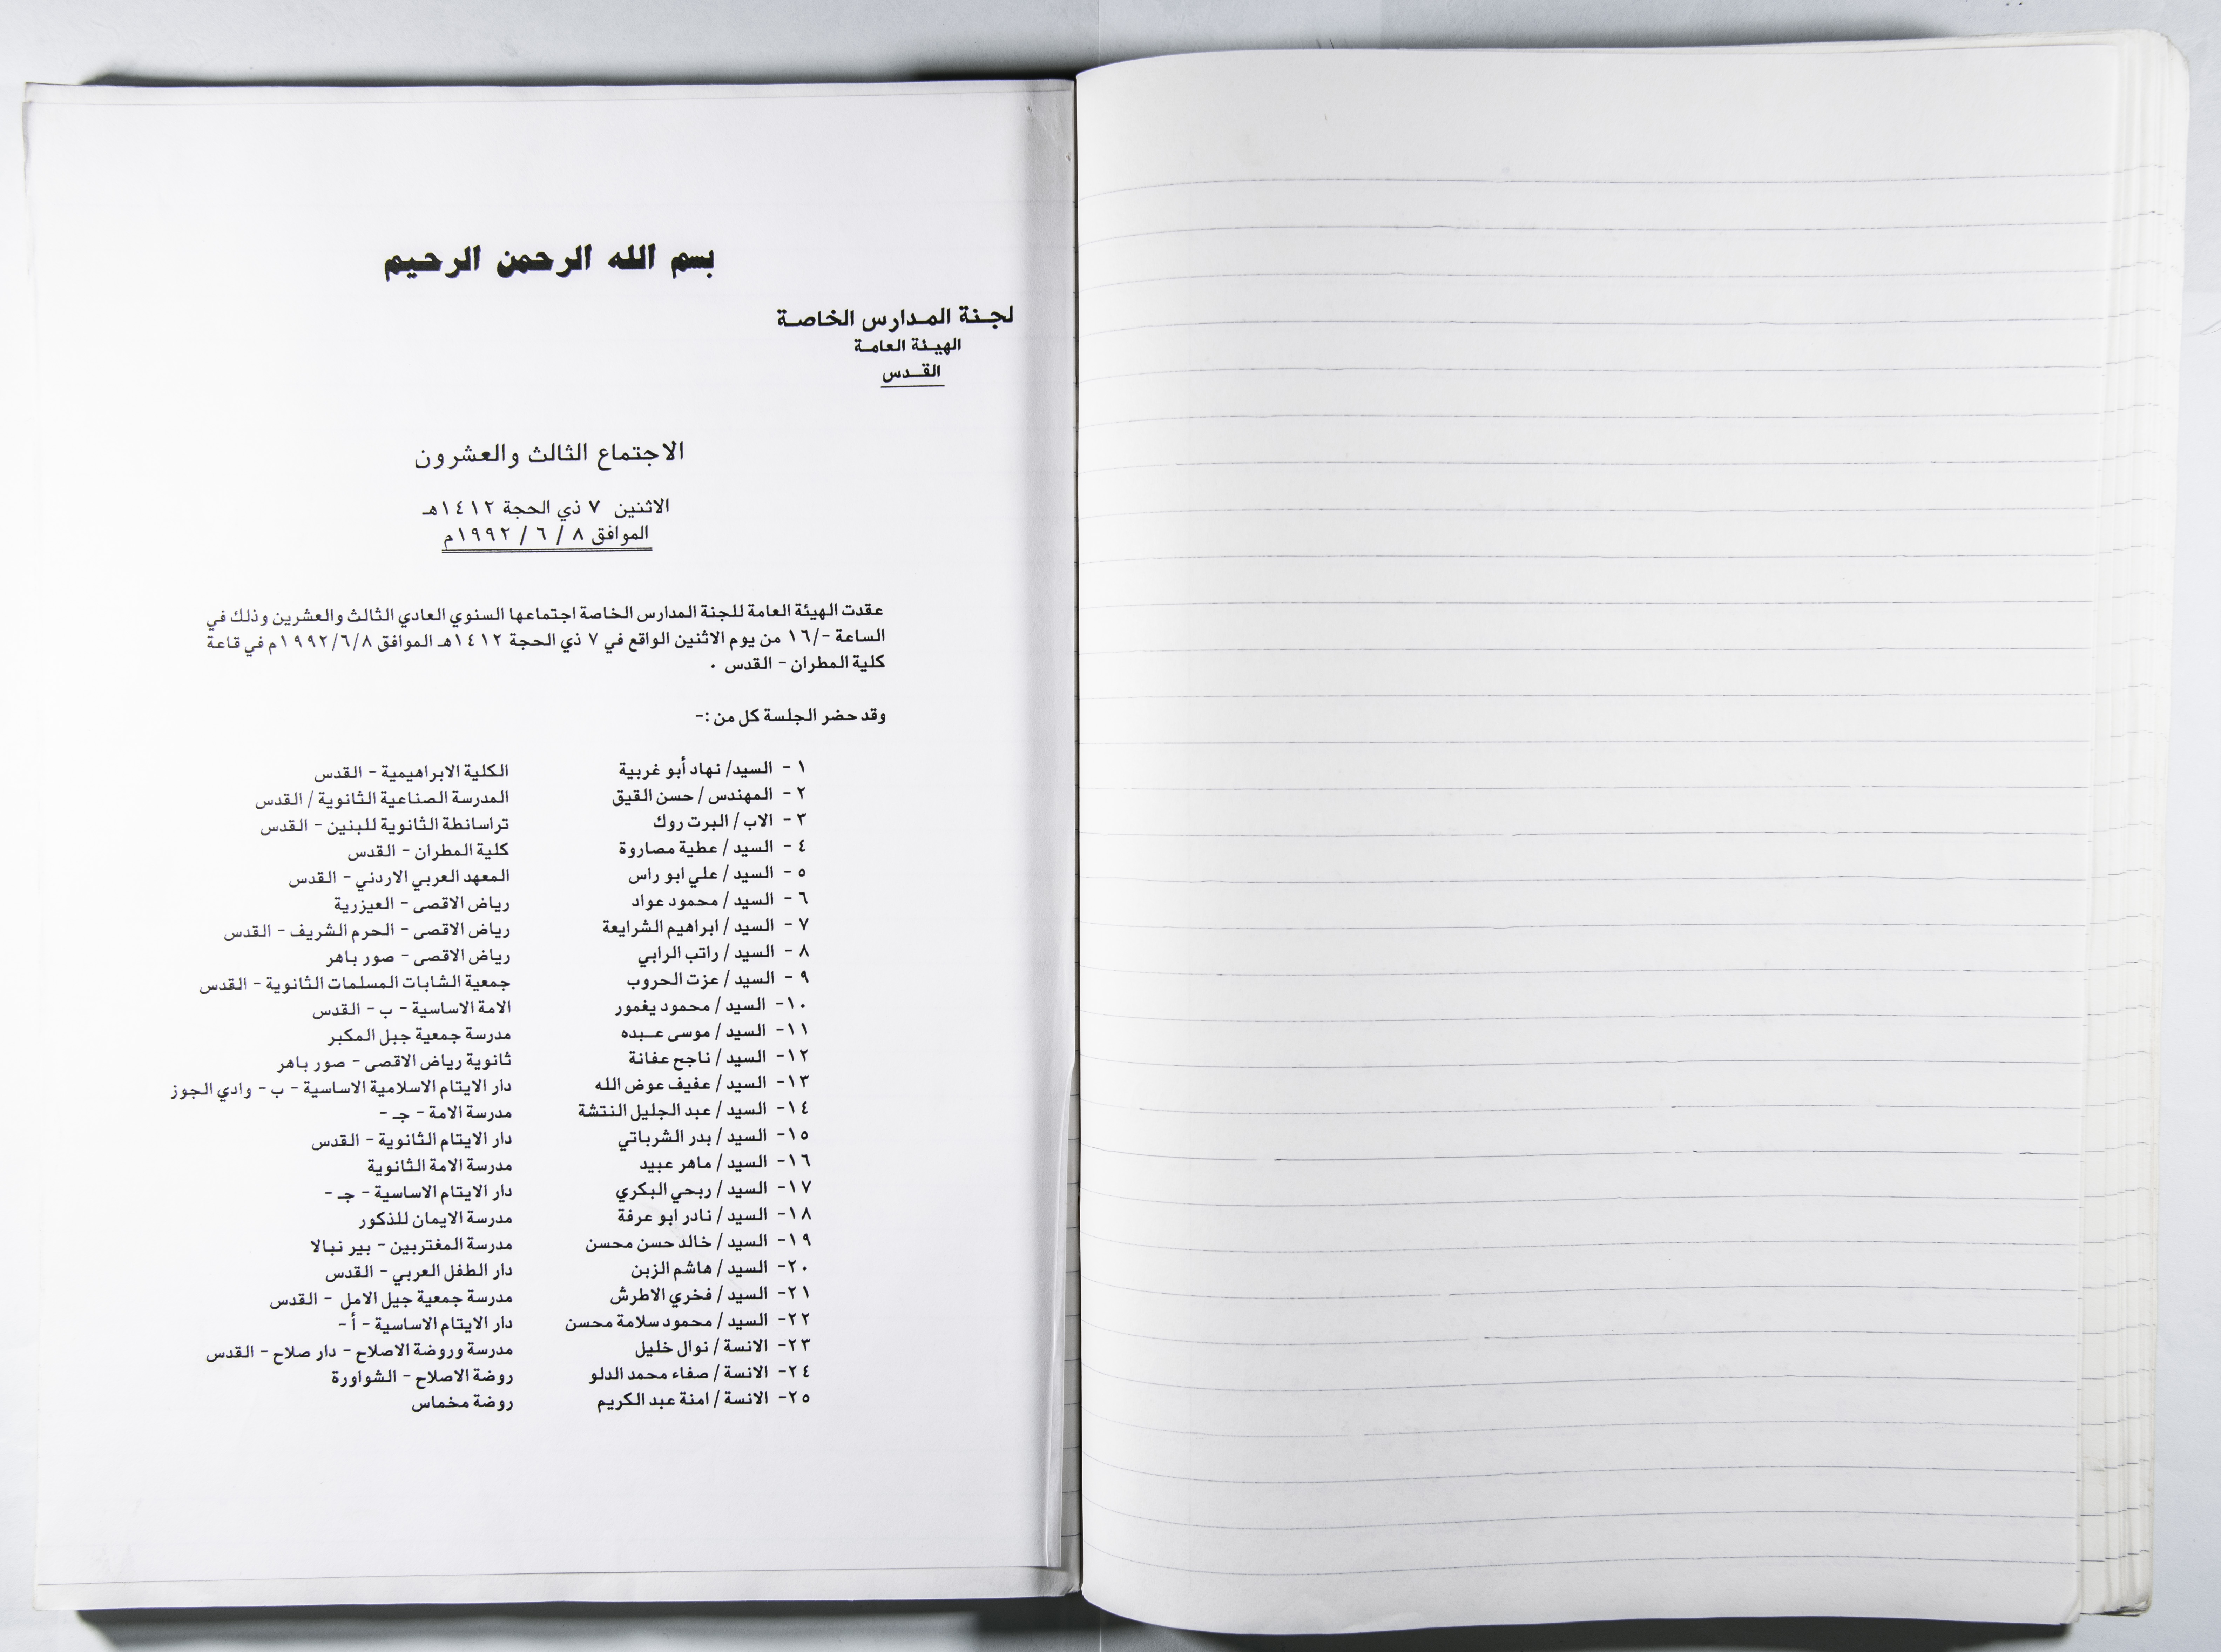 بسم الله الرحمن الرحيم
لجنة المدارس الخاصة
الهيئة العامة
القدس
الاجتماع الثالث والعشرون
الاثنين ٧ ذي الحجة ١٤١٢هـ
الموافق ٨ / ٦ / ١٩٩٢م
عقدت الهيئة العامة للجنة المدارس الخاصة اجتماعها السنوي العادي الثالث والعشرين وذلك في
الساعة -/١٦ من يوم الاثنين الواقع في ٧ ذي الحجة ١٤١٢هـ الموافق ١٩٩٢/٦/٨م في قاعة
كلية المطران - القدس ٠
وقد حضر الجلسة كل من :-
١ - السيد/ نهاد أبو غربية الكلية الابراهيمية - القدس
٢ - المهندس / حسن القيق المدرسة الصناعية الثانوية / القدس
٣ - الاب / البرت روك تراسانطة الثانوية للبنين - القدس
٤ - السيد / عطية مصاروة كلية المطران - القدس
٥ - السيد / علي ابو راس المعهد العربي الاردني - القدس
٦ - السيد / محمود عواد رياض الاقصى - العيزرية
٧ - السيد / ابراهيم الشرايعة رياض الاقصى - الحرم الشريف - القدس
٨ - السيد / راتب الرابي رياض الاقصى - صور باهر
٩ - السيد / عزت الحروب جمعية الشابات المسلمات الثانوية - القدس
١٠- السيد / محمود يغمور الامة الاساسية - ب - القدس
١١- السيد / موسى عبده مدرسة جمعية جبل المكبر
١٢- السيد / ناجح عفانة ثانوية رياض الاقصى - صور باهر
١٣- السيد / عفيف عوض الله دار الايتام الاسلامية الاساسية - ب - وادي الجوز
١٤- السيد / عبد الجليل النتشة مدرسة الامة - جـ -
١٥- السيد / بدر الشرباتي دار الايتام الثانوية - القدس
١٦- السيد / ماهر عبيد مدرسة الامة الثانوية
١٧- السيد / ربحي البكري دار الايتام الاساسية - جـ -
١٨- السيد / نادر ابو عرفة مدرسة الايمان للذكور
١٩- السيد / خالد حسن محسن مدرسة المغتربين - بير نبالا
٢٠- السيد / هاشم الزبن دار الطفل العربي - القدس
٢١- السيد / فخري الاطرش مدرسة جمعية جيل الامل - القدس
٢٢- السيد / محمود سلامة محسن دار الايتام الاساسية - أ -
٢٣- الانسة / نوال خليل مدرسة وروضة الاصلاح - دار صلاح - القدس
٢٤- الانسة / صفاء محمد الدلو روضة الاصلاح - الشواورة
٢٥- الانسة / امنة عبد الكريم روضة مخماس